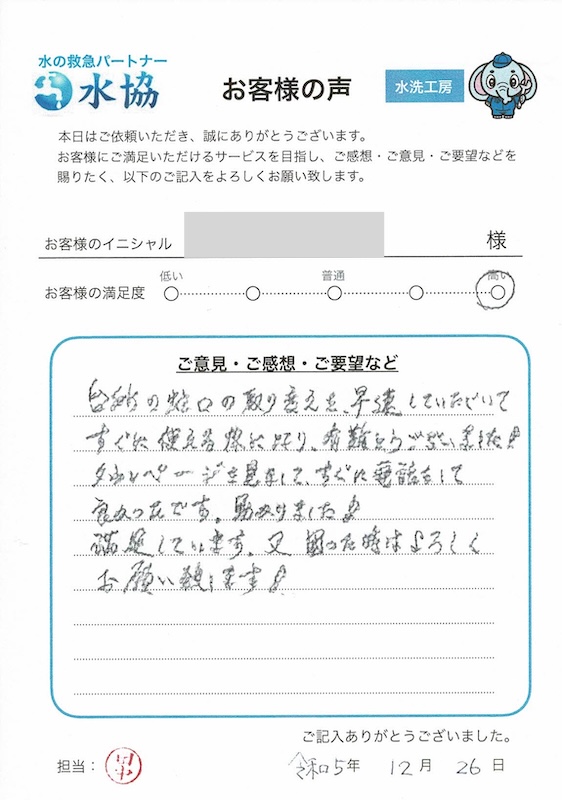 水の救急パートナー
水協
お客様の声
水洗工房
本日はご依頼いただき、誠にありがとうございます。
お客様にご満足いただけるサービスを目指し、ご感想・ご意見・ご要望などを
賜りたく、以下のご記入をよろしくお願い致します。
お客様のイニシャル 様
低い 普通 高い
お客様の満足度
ご意見・ご感想・ご要望など
台所の蛇口の取り変えを、早速していただいて
すぐに使える様になり、有難とうございました!
タウンページを見まして、すぐに電話をして
良かったです。助かりました!
満足しています。又困った時はよろしく
お願い致します!
ご記入ありがとうございました。
担当: 令和5年 12月 26日